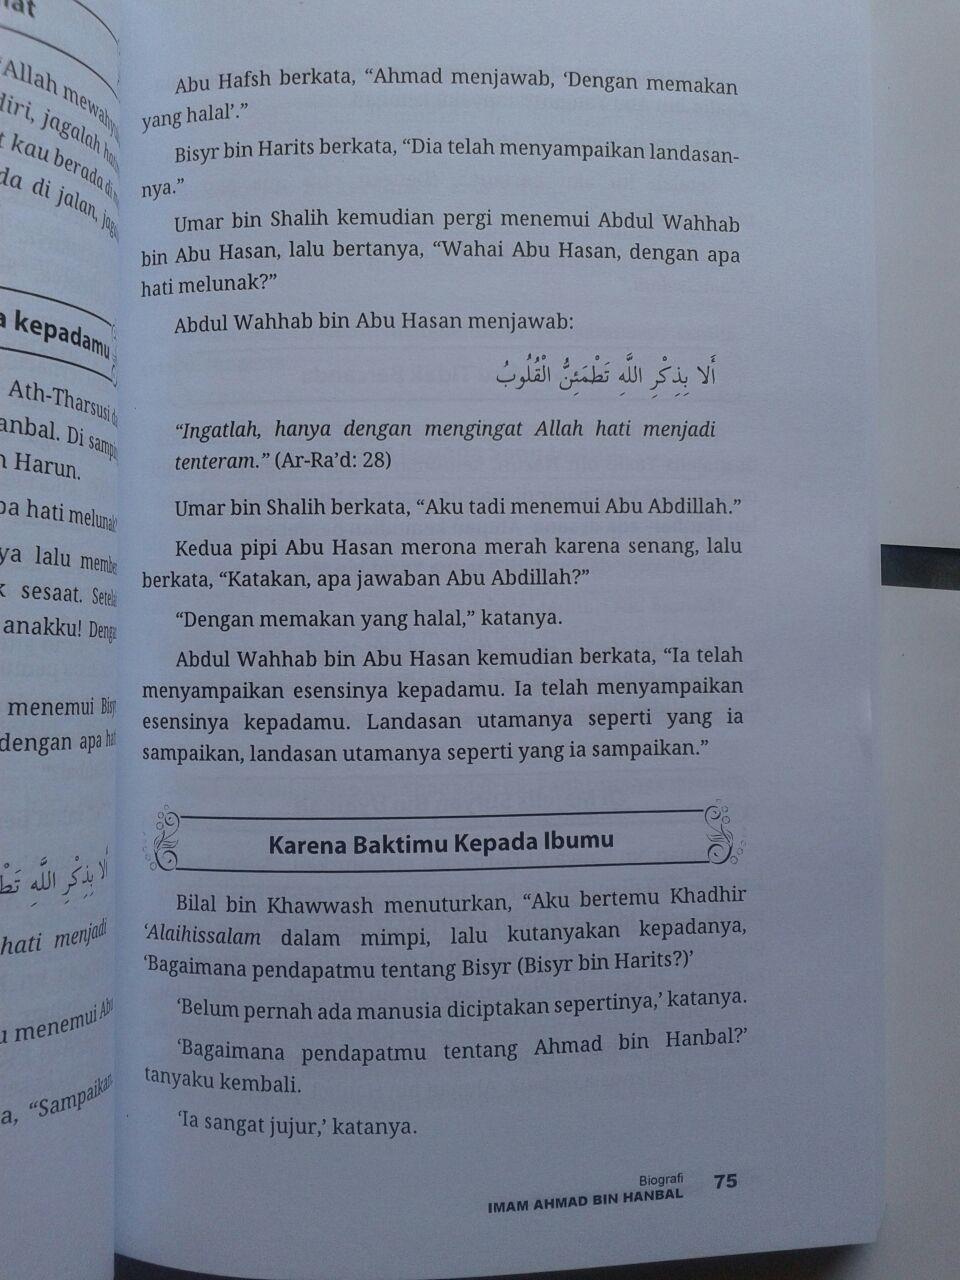 hat
“Allah mewahyu
diri, jagalah hati
t kau berada di
da di jalan, jaga
a kepadamu
Ath-Tharsusi
anbal. Di samping
n Harun.
pa hati melunak
ya lalu
k sesaat. Setelah
anakku! Dengan
menemui Bisyr
dengan apa hati
أَلَا بِذِكْرِ اللَّهِ
hati menjadi
u menemui Abu
a, “Sampaikan
Abu Hafsh berkata, “Ahmad menjawab, ‘Dengan memakan
yang halal’.”
Bisyr bin Harits berkata, “Dia telah menyampaikan landasan-
nya.”
Umar bin Shalih kemudian pergi menemui Abdul Wahhab
bin Abu Hasan, lalu bertanya, “Wahai Abu Hasan, dengan apa
hati melunak?”
Abdul Wahhab bin Abu Hasan menjawab:
أَلَا بِذِكْرِ اللَّهِ تَطْمَئِنُّ الْقُلُوبُ
“Ingatlah, hanya dengan mengingat Allah hati menjadi
tenteram.” (Ar-Ra’d: 28)
Umar bin Shalih berkata, “Aku tadi menemui Abu Abdillah.”
Kedua pipi Abu Hasan merona merah karena senang, lalu
berkata, “Katakan, apa jawaban Abu Abdillah?”
“Dengan memakan yang halal,” katanya.
Abdul Wahhab bin Abu Hasan kemudian berkata, “Ia telah
menyampaikan esensinya kepadamu. Ia telah menyampaikan
esensinya kepadamu. Landasan utamanya seperti yang ia
sampaikan, landasan utamanya seperti yang ia sampaikan.”
Karena Baktimu Kepada Ibumu
Bilal bin Khawwash menuturkan, “Aku bertemu Khadhir
‘Alaihissalam dalam mimpi, lalu kutanyakan kepadanya,
‘Bagaimana pendapatmu tentang Bisyr (Bisyr bin Harits?)’
‘Belum pernah ada manusia diciptakan sepertinya,’ katanya.
‘Bagaimana pendapatmu tentang Ahmad bin Hanbal?’
tanyaku kembali.
‘Ia sangat jujur,’ katanya.
Biografi
IMAM AHMAD BIN HANBAL 75